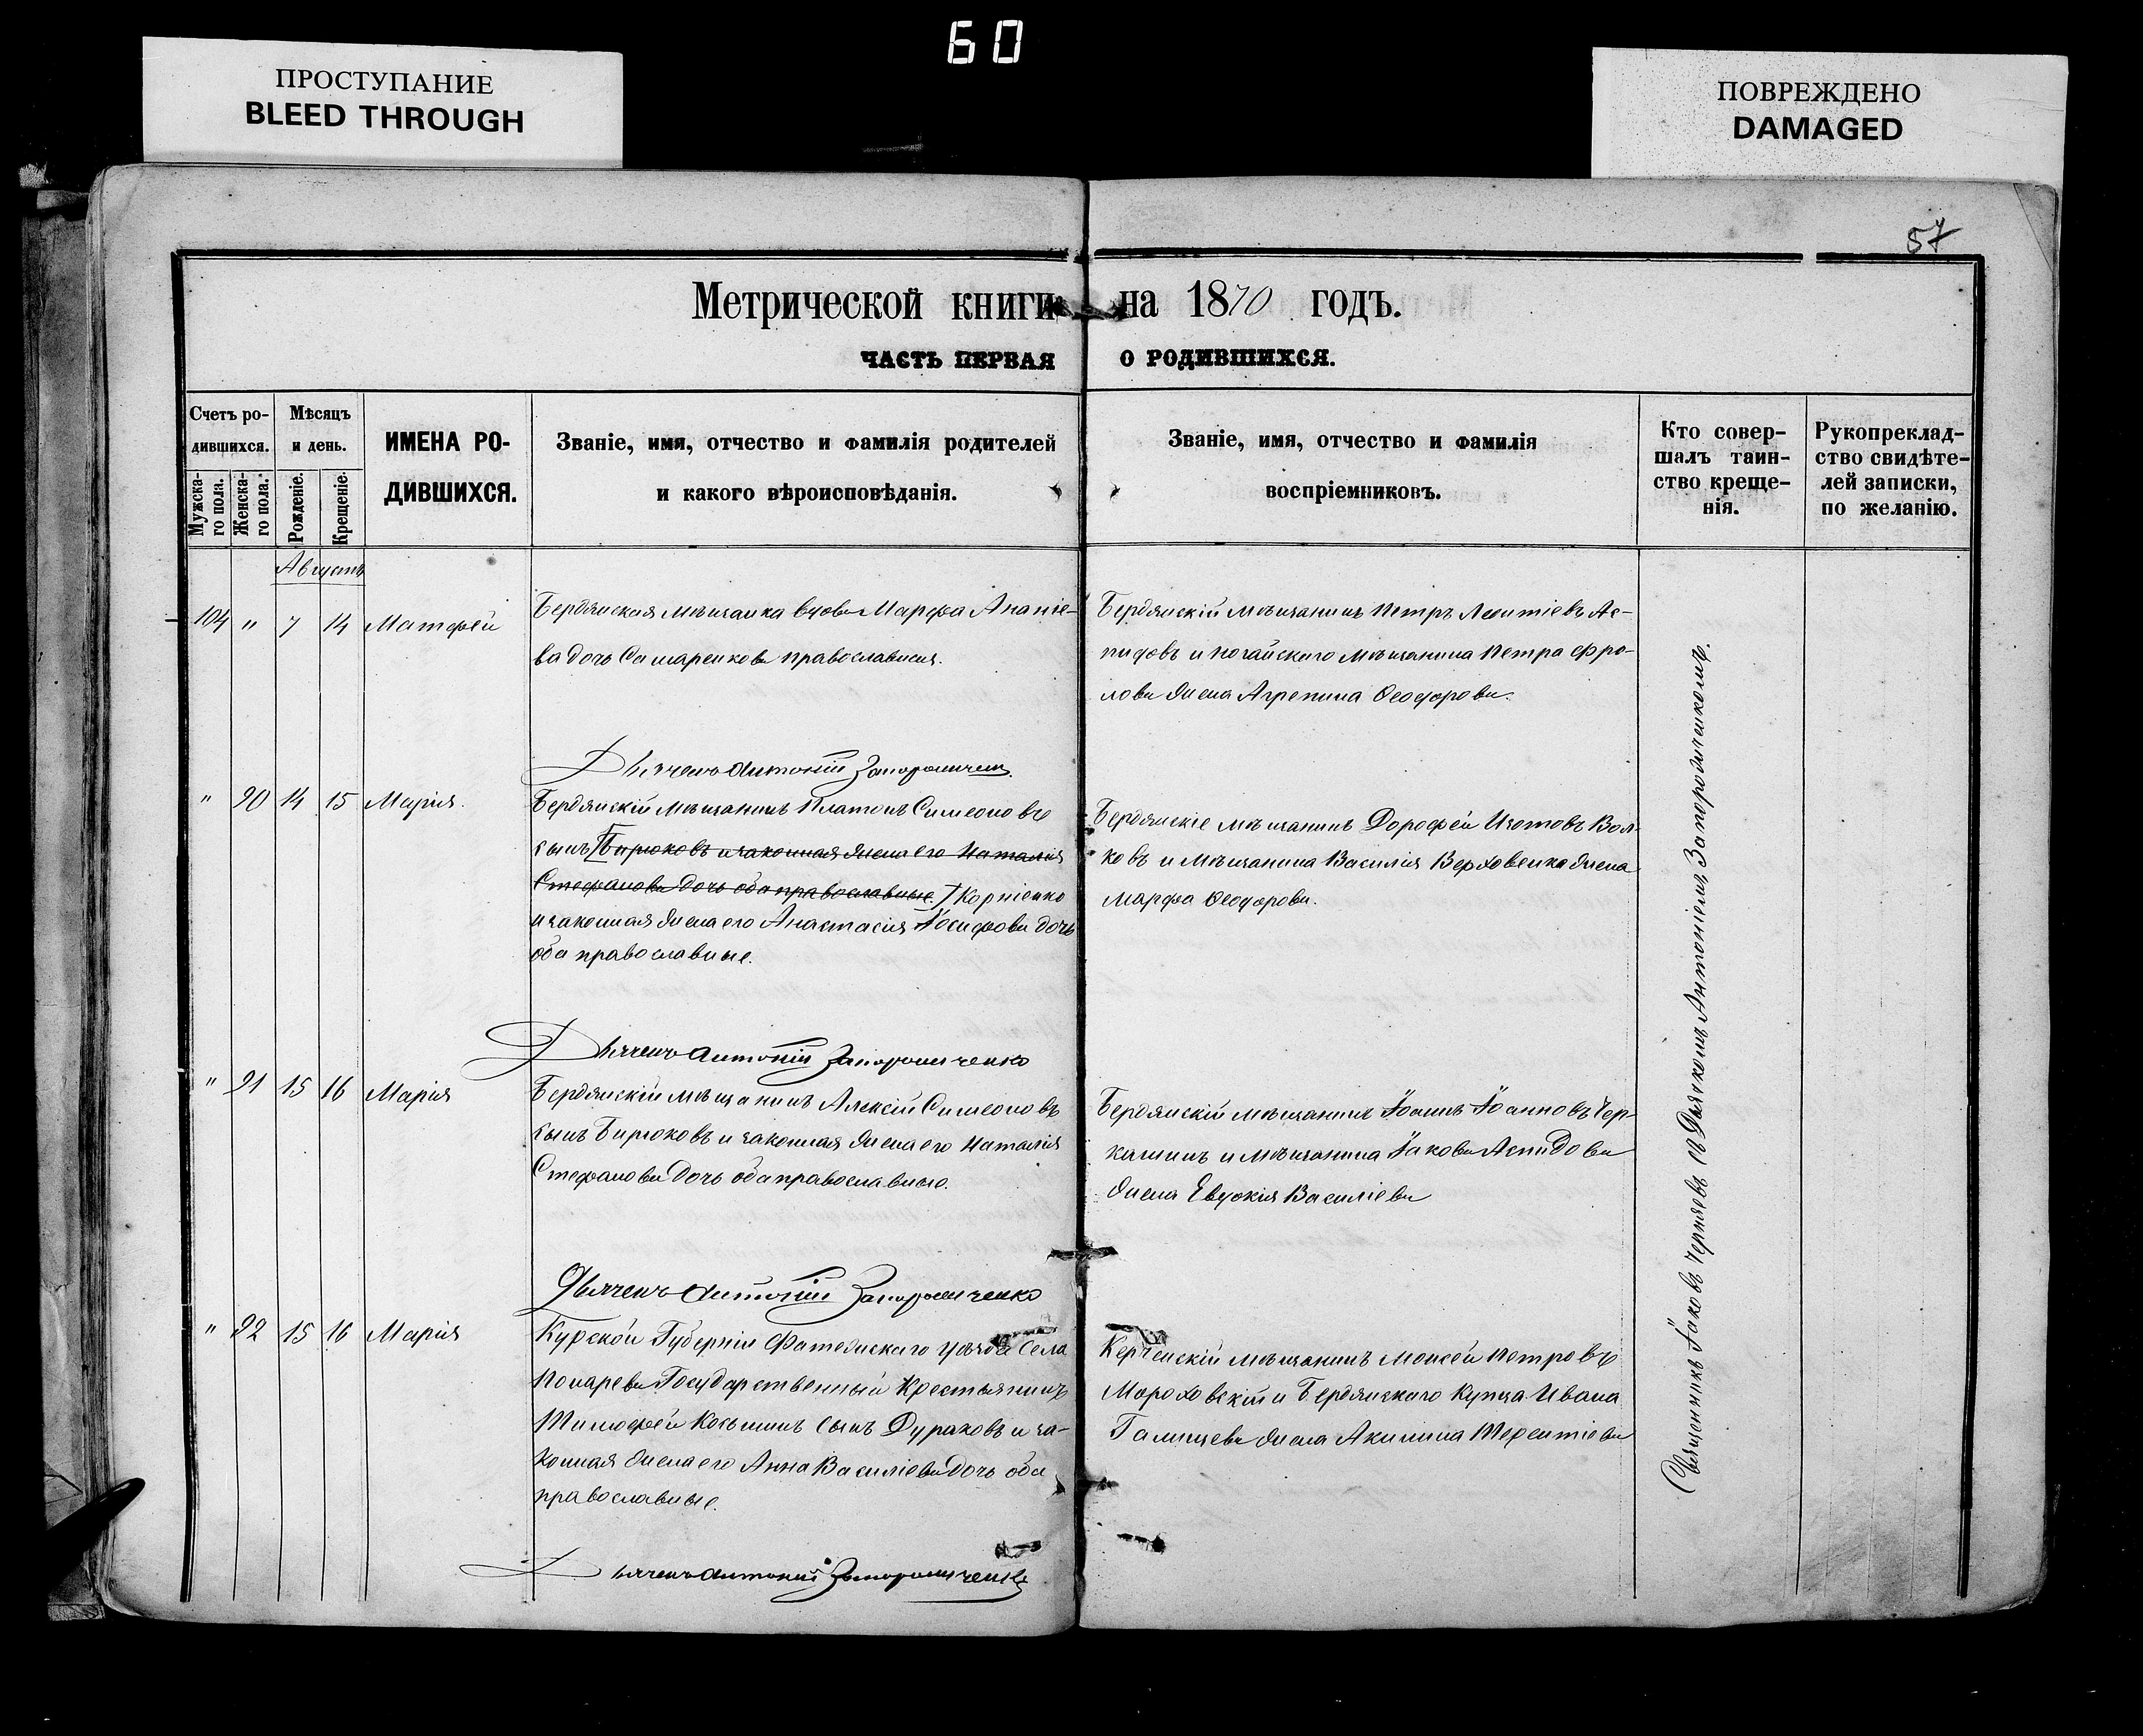 60
ПРОСТУПАНИЕ
BLEED THROUGH
ПОВРЕЖДЕНО
DAMAGED
57
Метрической книги на 1870 годъ.
ЧАСТЬ ПЕРВАЯ О РОДИВШИХСЯ.
Счетъ ро-
дившихся.
Мужска-
го пола.
Женска-
го пола.
Мѣсяцъ
и день.
Рожденіе.
Крещеніе.
ИМЕНА РО-
ДИВШИХСЯ.
Званіе, имя, отчество и фамилія родителей
и какого вѣроисповѣданія.
Званіе, имя, отчество и фамилія
воспріемниковъ.
Кто совер-
шалъ таин-
ство креще-
нія.
Рукоприклад-
ство свидѣте-
лей записки,
по желанію.
Августъ
104 " 7 14 Матфей
Бердянская мѣщанка вдова Марфа Ананіе-
ва дочь Самаренкова православная.
Бердянскій мѣщанинъ Петръ Леонтіевъ Ас-
пидовъ и ногайскаго мѣщанина Петра Фро-
лова жена Агрепина Феодорова.
Дьяченъ Антоній Запорожченко
" 90 14 15 Марія.
Бердянскій мѣщанинъ Платонъ Симеоновъ
сынъ [Бирюковъ и законная жена его Наталія
Стефанова дочь оба православные] Корніенко
и законная жена его Анастасія Іосифова дочь
оба православные.
Бердянскіе мѣщанинъ Дорофей Изотовъ Вол-
ковъ и мѣщанина Василія Верховенка жена
Марфа Феодорова.
Дьяченъ Антоній Запорожченко
" 91 15 16 Марія
Бердянскій мѣщанинъ Алексій Симеоновъ
сынъ Бирюковъ и законная жена его Наталія
Стефанова дочь оба православные.
Бердянскій мѣщанинъ Іоаннъ Іоанновъ Чер-
кашинъ и мѣщанина Іакова Аспидова
жена Евдокія Василіева
Дьяченъ Антоній Запорожченко
" 92 15 16 Марія
Курской Губерніи Фатежскаго уѣзда Села
Понарева Государственный Крестьянинъ
Тимофей Косьминъ сынъ Дураковъ и за-
конная жена его Анна Василіева дочь оба
православные.
Керченскій мѣщанинъ Моисей Петровъ
Мороховскій и Бердянскаго Купца Ивана
Галицева жена Акилина Терентіева
Дьяченъ Антоній Запорожченко
Священникъ Іаковъ Черняевъ съ Дьячкомъ Антоніемъ Запорожченкомъ.